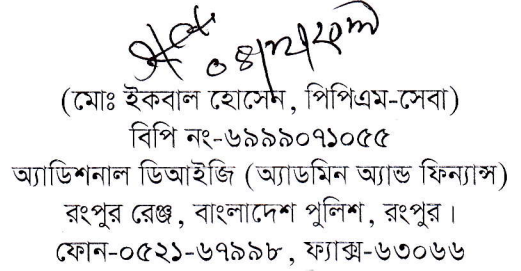 ০৪/১২/২০১৮
(মোঃ ইকবাল হোসেন, পিপিএম-সেবা)
বিপি নং-৬৯৯৯০৭১০৫৫
অ্যাডিশনাল ডিআইজি (অ্যাডমিন অ্যান্ড ফিন্যান্স)
রংপুর রেঞ্জ, বাংলাদেশ পুলিশ, রংপুর।
ফোন-০৫২১-৬৭৯৯৮, ফ্যাক্স-৬৩০৬৬